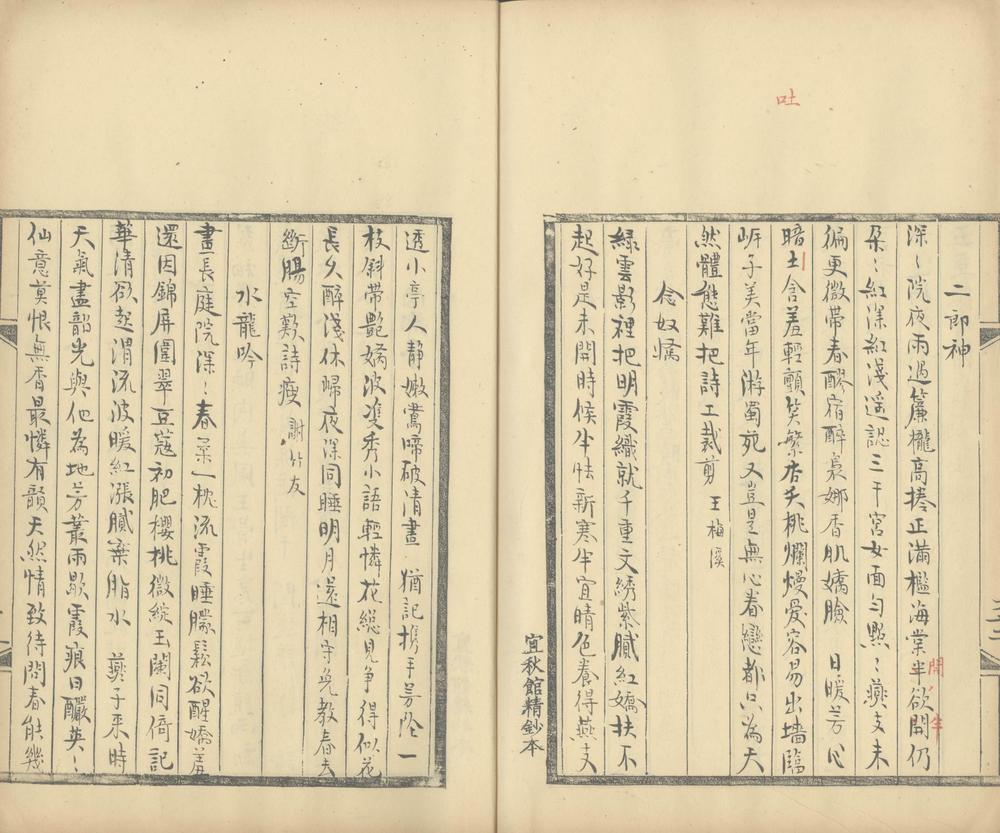 吐
二郎神
深〻院夜雨過簾櫳高捲正滿檻海棠半欲開仍
開 半
朶〻紅深紅淺遥認三千宮女面勻點〻燕支未
徧更微帶春醪宿醉裊娜香肌嬌臉 日暖芳心
暗土含羞輕顫笑繁杏夭桃爛熳愛容易出墻臨
岍子美當年游蜀苑又豈是無心眷戀都只為天
然體態難把詩工裁剪 王梅溪
念奴嬌
綠雲影裡把明霞織就千重文綉紫膩紅嬌扶不
起好是未開時候半怯新寒半宜晴色養得燕支
宜秋館精鈔本
透小亭人静嫩鶯啼破清晝 猶記携手芳陰一
枝斜帶艷嬌波雙秀小語輕憐花總見争得似花
長久醉淺休歸夜深同睡明月還相守免教春去
斷腸空歎詩瘦 謝竹友
水龍吟
晝長庭院深〻春柔一枕流霞睡朦鬆欲醒嬌羞
還因錦屏圍翠豆蔻初肥櫻桃微綻玉闌同倚記
華清欲起渭流波暖紅漲膩棄脂水 燕子來時
天氣盡韶光與他為地芳叢雨歇霞痕日釅英〻
仙意莫恨無香最憐有韻天然情致待問春能幾